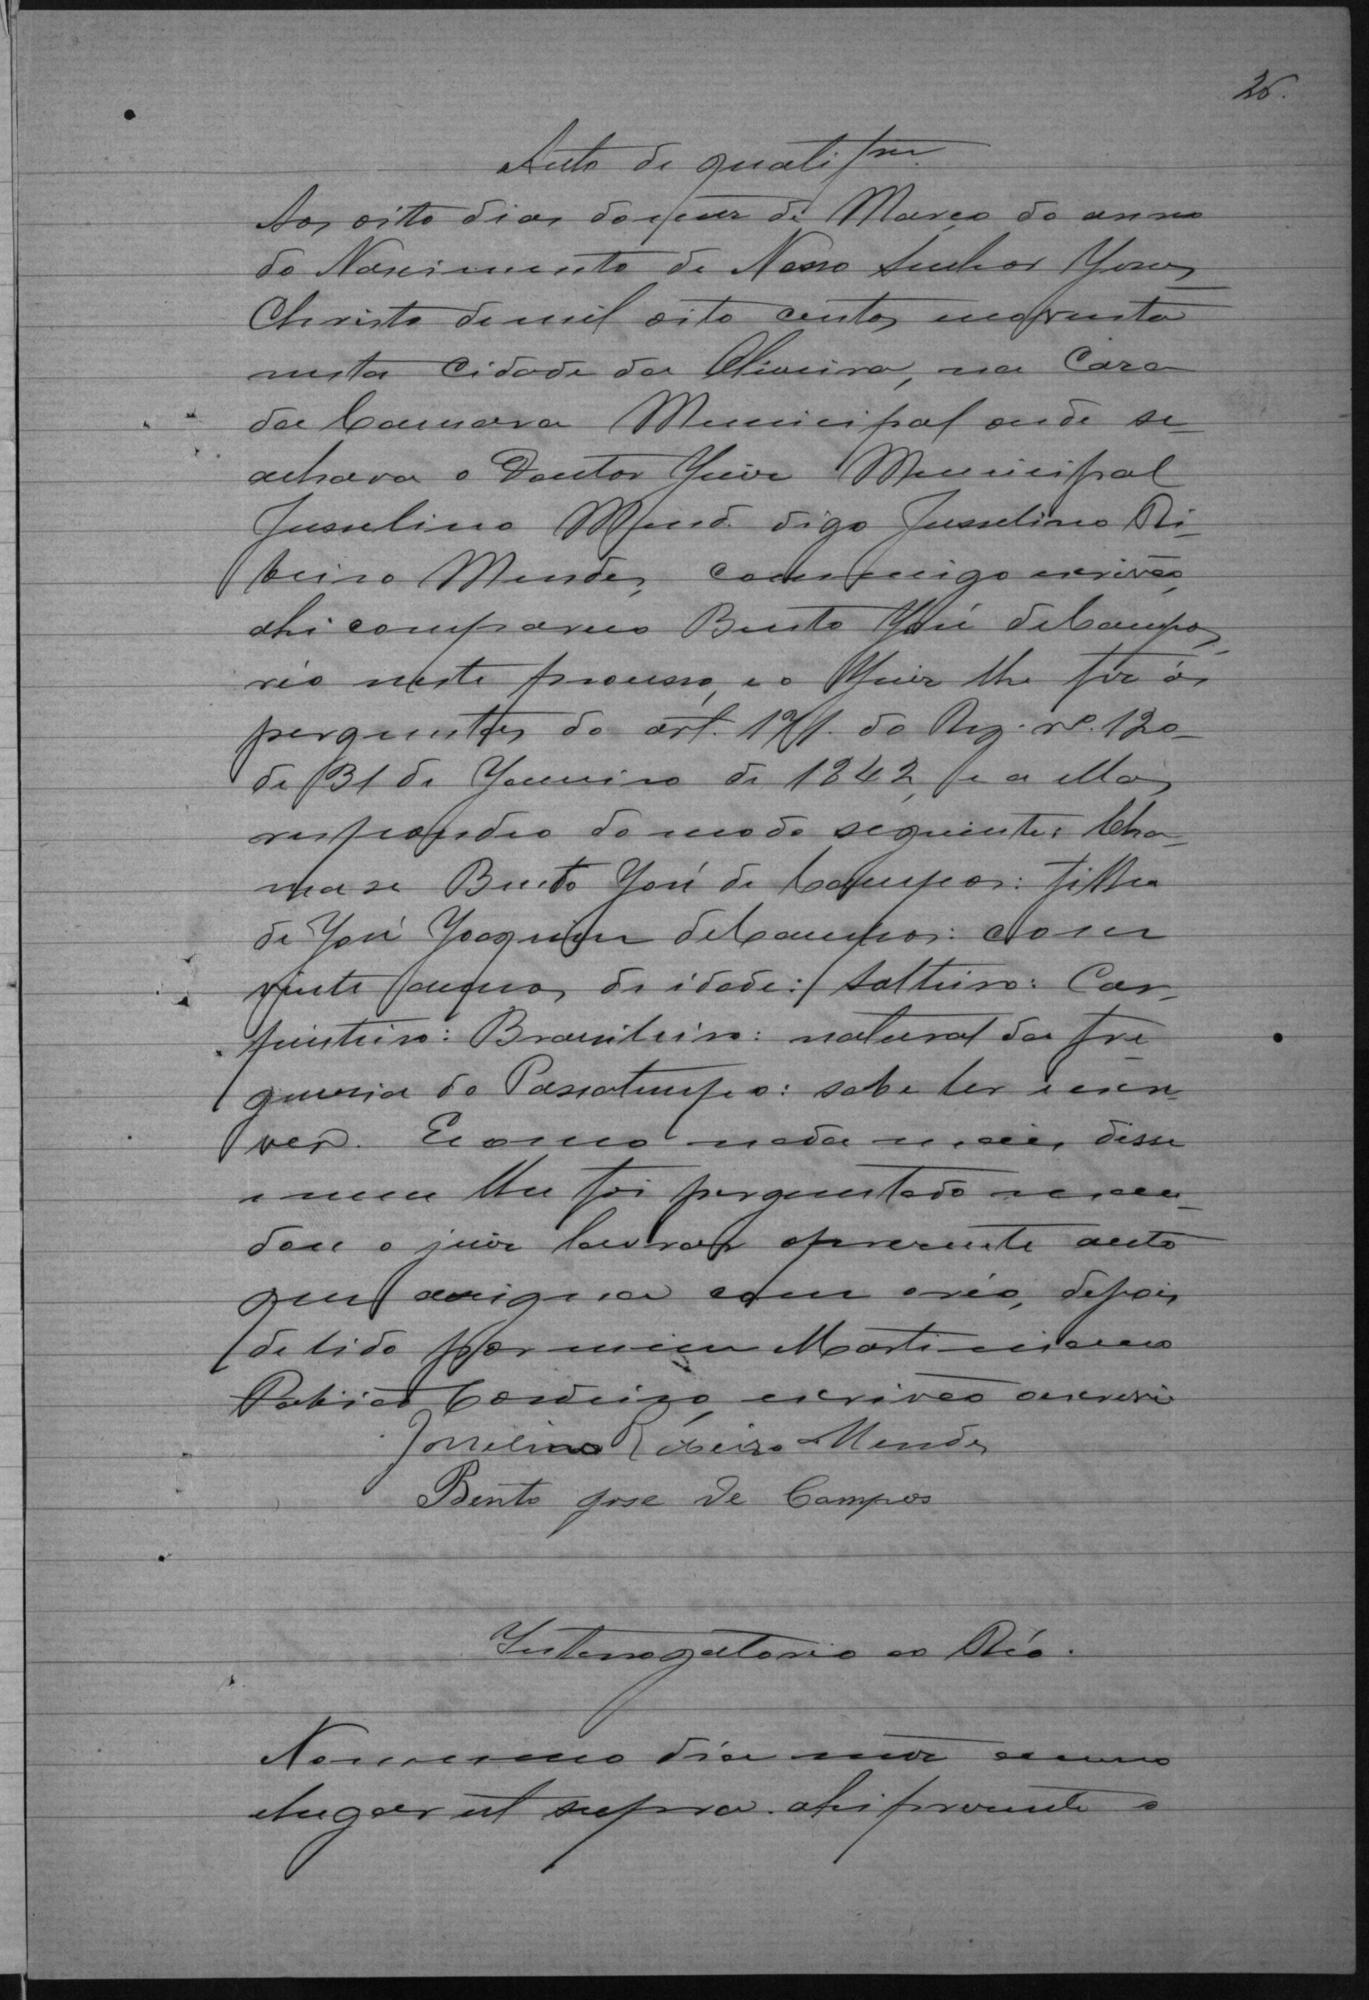 26.
Auto de qualif<sup>cam</sup>
Aos oito dias do mez de Março do anno
do Nascimento de Nosso Senhor Jesus
Christo de mil oito centos e noventa
nesta Cidade da Oliveira, na Casa
da Camara Municipal onde se-
achava o Doutor Juiz Municipal
Jusselino Mend. digo Jusselino Ri-
beiro Mendes, commigo escrivão,
ahi compareceo Bento José de Campos,
réo neste processo, e o Juiz lhe fez ás
perguntas do art. 171. do Reg. nº. 120-
de 31 de Janeiro de 1842, e a ellas
respondeo do modo seguinte: Cha-
ma se Bento José de Campos: filho
de José Joaquim de Campos: com
vinte annos de idade: Solteiro: Car-
pinteiro: Brasileiro: natural da fre-
guesia do Passatempo: sabe ler e escre-
ver. E como nada mais disse
e nem lhe foi perguntado man-
dou o juiz lavrar o presente auto
que assigna com o réo, depois
de lido por mim Martiniano
Patricio Cordeiro, escrivão o escrevi
Josselino Ribeiro Mendes
Bento Jose de Campos
Interrogatorio ao Réo.
No mesmo dia mez anno
e lugar ut supra. ahi presente o